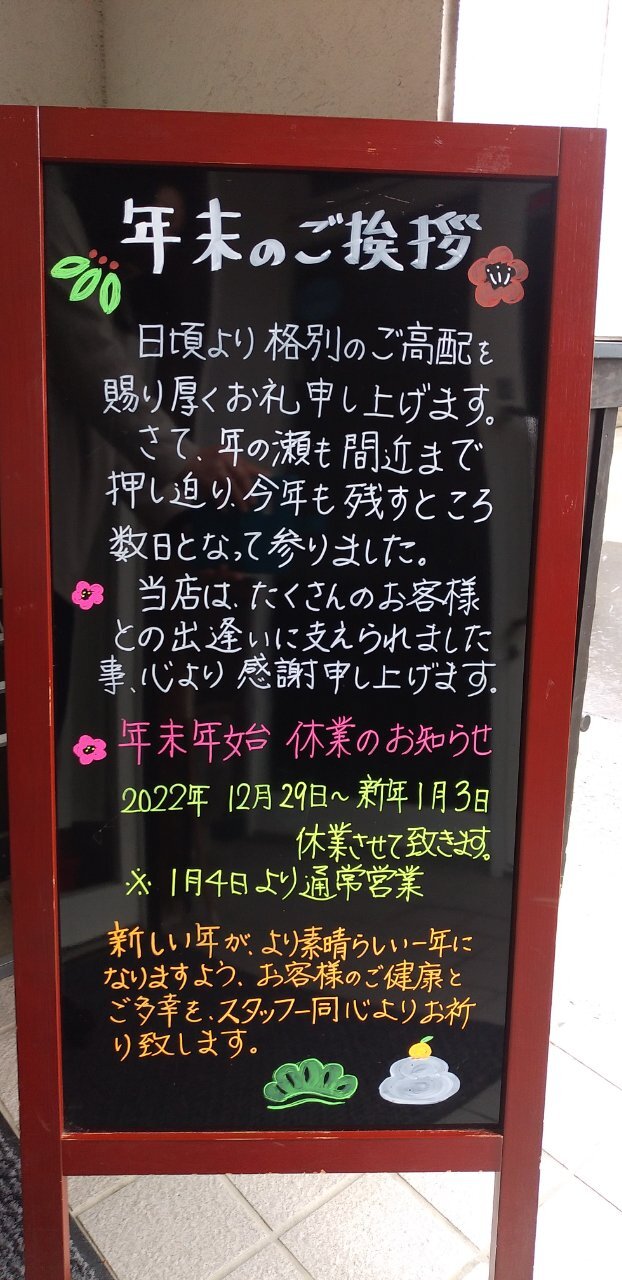 年末のご挨拶
日頃より格別のご高配を
賜り厚くお礼申し上げます。
さて、年の瀬も間近まで
押し迫り、今年も残すところ
数日となって参りました。
当店は、たくさんのお客様
との出逢いに支えられました
事、心より感謝申し上げます。
年末年始 休業のお知らせ
2022年 12月29日~新年1月3日
休業させて致きます。
※ 1月4日より通常営業
新しい年が、より素晴らしい一年に
なりますよう、お客様のご健康と
ご多幸を、スタッフ一同心よりお祈
り致します。